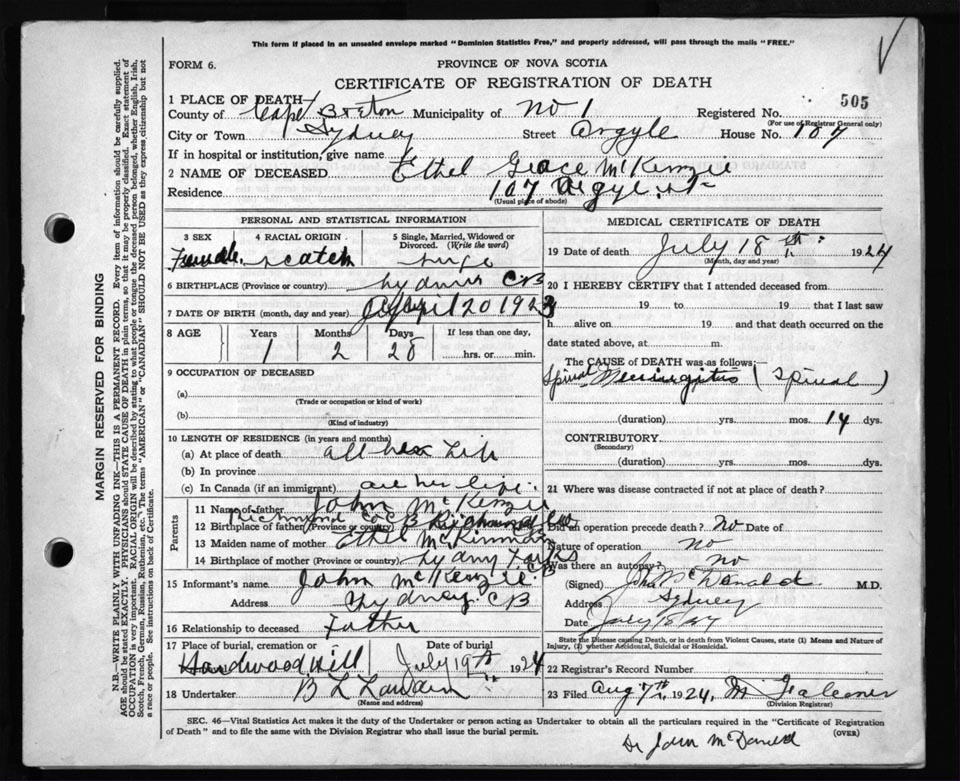 This form if placed in an unsealed envelope marked "Dominion Statistics Free," and properly addressed, will pass through the mails "FREE."
FORM 6.
PROVINCE OF NOVA SCOTIA
CERTIFICATE OF REGISTRATION OF DEATH
505
1 PLACE OF DEATH—
County of Cape Breton Municipality of No 1 Registered No.
(For use of Registrar General only)
City or Town Sydney Street Argyle House No. 107
If in hospital or institution, give name
2 NAME OF DECEASED Ethel Grace McKenzie
Residence 107 Argyle St
(Usual place of abode)
PERSONAL AND STATISTICAL INFORMATION
3 SEX 4 RACIAL ORIGIN 5 Single, Married, Widowed or Divorced. (Write the word)
Female Scotch
6 BIRTHPLACE (Province or country) Sydney CB
7 DATE OF BIRTH (month, day and year) April 20 1923
8 AGE Years Months Days If less than one day,
1 2 28 hrs. or min.
9 OCCUPATION OF DECEASED
(a)
(Trade or occupation or kind of work)
(b)
(Kind of industry)
10 LENGTH OF RESIDENCE (in years and months)
(a) At place of death all her Life
(b) In province
(c) In Canada (if an immigrant) all her life
Parents
11 Name of father John McKenzie
12 Birthplace of father (Province or country) Richmond Co C B
13 Maiden name of mother Ethel McKinnon
14 Birthplace of mother (Province or country) Sydney
15 Informant's name John McKenzie
Address Sydney CB
16 Relationship to deceased Father
17 Place of burial, cremation or Date of burial
Hardwood Hill July 19th 1924
18 Undertaker B L
(Name and address)
MEDICAL CERTIFICATE OF DEATH
19 Date of death July 18th 1924
(Month, day and year)
20 I HEREBY CERTIFY that I attended deceased from
19 to 19 that I last saw
h alive on 19 and that death occurred on
date stated above, at m.
The CAUSE of DEATH was as follows:—
Spinal Meningitis (Spinal)
(duration) yrs. mos. 14 dys.
CONTRIBUTORY
(Secondary)
(duration) yrs. mos. dys.
21 Where was disease contracted if not at place of death?
Did an operation precede death? no Date of
Nature of operation no
Was there an autopsy? no
(Signed) John McDonald M.D.
Address Sydney
Date July 18/24
State the Disease causing Death, or in death from Violent Causes, state (1) Means and Nature of Injury, (2) whether Accidental, Suicidal or Homicidal.
22 Registrar's Record Number
23 Filed Aug 7th 1924, M Falconer
(Division Registrar)
SEC. 46—Vital Statistics Act makes it the duty of the Undertaker or person acting as Undertaker to obtain all the particulars required in the "Certificate of Registration
of Death" and to file the same with the Division Registrar who shall issue the burial permit.
(OVER)
Dr John McDonald
MARGIN RESERVED FOR BINDING
N.B.—WRITE PLAINLY WITH UNFADING INK—THIS IS A PERMANENT RECORD. Every item of information should be carefully supplied.
AGE should be stated EXACTLY. PHYSICIANS should STATE CAUSE OF DEATH in plain terms, so that it may be properly classified. Exact statement of
OCCUPATION is very important. RACIAL ORIGIN will be described by stating to what people or tongue the deceased person belonged, whether English, Irish,
Scotch, French, German, Russian, Ruthenian, etc. The terms "AMERICAN" or "CANADIAN" SHOULD NOT BE USED as they express citizenship but not
a race or people. See instructions on back of Certificate.